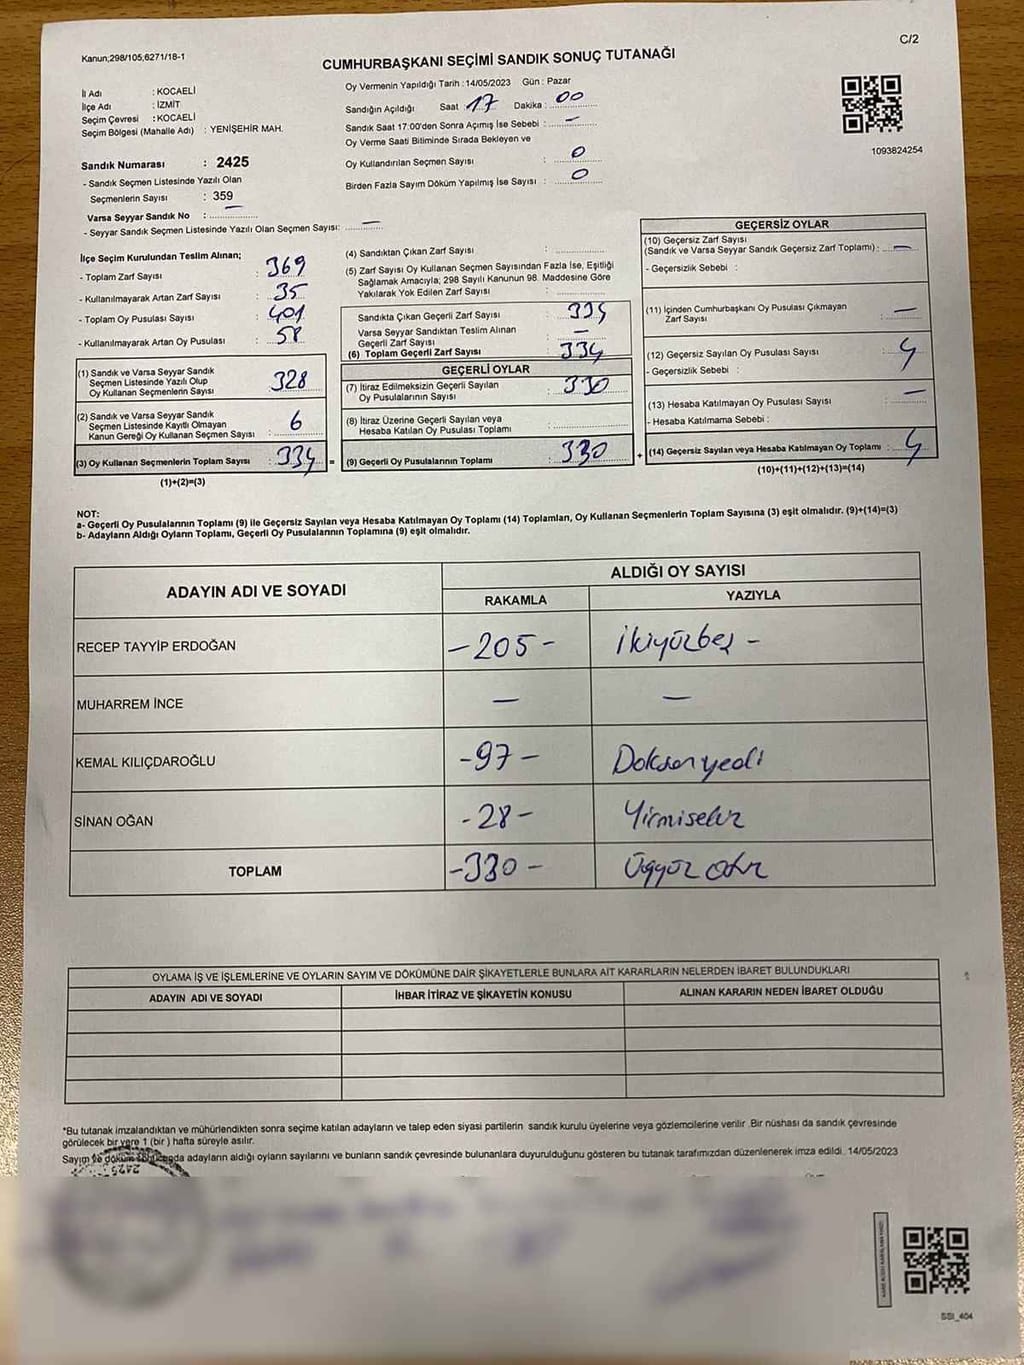 Kanun;298/105,6271/18-1
C/2
CUMHURBAŞKANI SEÇİMİ SANDIK SONUÇ TUTANAĞI
İl Adı : KOCAELİ
İlçe Adı : İZMİT
Seçim Çevresi : KOCAELİ
Seçim Bölgesi (Mahalle Adı) : YENİŞEHİR MAH.
Sandık Numarası : 2425
- Sandık Seçmen Listesinde Yazılı Olan
Seçmenlerin Sayısı : 359
Varsa Seyyar Sandık No : —
- Seyyar Sandık Seçmen Listesinde Yazılı Olan Seçmen Sayısı: —
Oy Vermenin Yapıldığı Tarih : 14/05/2023 Gün : Pazar
Sandığın Açıldığı Saat 17 Dakika : 00
Sandık Saat 17:00'den Sonra Açımış İse Sebebi : —
Oy Verme Saati Bitiminde Sırada Bekleyen ve
Oy Kullandırılan Seçmen Sayısı : 0
Birden Fazla Sayım Döküm Yapılmış İse Sayısı : 0
1093824254
İlçe Seçim Kurulundan Teslim Alınan;
- Toplam Zarf Sayısı : 369
- Kullanılmayarak Artan Zarf Sayısı : 35
- Toplam Oy Pusulası Sayısı : 401
- Kullanılmayarak Artan Oy Pusulası : 58
(1) Sandık ve Varsa Seyyar Sandık
Seçmen Listesinde Yazılı Olup
Oy Kullanan Seçmenlerin Sayısı : 328
(2) Sandık ve Varsa Seyyar Sandık
Seçmen Listesinde Kayıtlı Olmayan
Kanun Gereği Oy Kullanan Seçmen Sayısı : 6
(3) Oy Kullanan Seçmenlerin Toplam Sayısı : 334 =
(1)+(2)=(3)
(4) Sandıktan Çıkan Zarf Sayısı :
(5) Zarf Sayısı Oy Kullanan Seçmen Sayısından Fazla İse, Eşitliği
Sağlamak Amacıyla; 298 Sayılı Kanunun 98. Maddesine Göre
Yakılarak Yok Edilen Zarf Sayısı :
Sandıkta Çıkan Geçerli Zarf Sayısı : 334
Varsa Seyyar Sandıktan Teslim Alınan
Geçerli Zarf Sayısı : —
(6) Toplam Geçerli Zarf Sayısı : 334
GEÇERLİ OYLAR
(7) İtiraz Edilmeksizin Geçerli Sayılan
Oy Pusulasının Sayısı : 330
(8) İtiraz Üzerine Geçerli Sayılan veya
Hesaba Katılan Oy Pusulası Toplamı :
(9) Geçerli Oy Pusulalarının Toplamı : 330 +
GEÇERSİZ OYLAR
(10) Geçersiz Zarf Sayısı
(Sandık ve Varsa Seyyar Sandık Geçersiz Zarf Toplamı) : —
- Geçersizlik Sebebi :
(11) İçinden Cumhurbaşkanı Oy Pusulası Çıkmayan
Zarf Sayısı : —
(12) Geçersiz Sayılan Oy Pusulası Sayısı : 4
- Geçersizlik Sebebi :
(13) Hesaba Katılmayan Oy Pusulası Sayısı : —
- Hesaba Katılmama Sebebi :
(14) Geçersiz Sayılan veya Hesaba Katılmayan Oy Toplamı : 4
(10)+(11)+(12)+(13)=(14)
NOT:
a- Geçerli Oy Pusulalarının Toplamı (9) ile Geçersiz Sayılan veya Hesaba Katılmayan Oy Toplamı (14) Toplamları, Oy Kullanan Seçmenlerin Toplam Sayısına (3) eşit olmalıdır. (9)+(14)=(3)
b- Adayların Aldığı Oyların Toplamı, Geçerli Oy Pusulalarının Toplamına (9) eşit olmalıdır.
ADAYIN ADI VE SOYADI
ALDIĞI OY SAYISI
RAKAMLA YAZIYLA
RECEP TAYYİP ERDOĞAN -205- İkiyüzbeş -
MUHARREM İNCE — —
KEMAL KILIÇDAROĞLU -97- Doksanyedi
SİNAN OĞAN -28- Yirmisekiz
TOPLAM -330- Üçyüz otuz
OYLAMA İŞ VE İŞLEMLERİNE VE OYLARIN SAYIM VE DÖKÜMÜNE DAİR ŞİKAYETLERLE BUNLARA AİT KARARLARIN NELERDEN İBARET BULUNDUKLARI
ADAYIN ADI VE SOYADI İHBAR İTİRAZ VE ŞİKAYETİN KONUSU ALINAN KARARIN NEDEN İBARET OLDUĞU
*Bu tutanak imzalandıktan ve mühürlendikten sonra seçime katılan adayların ve talep eden siyasi partilerin sandık kurulu üyelerine veya gözlemcilerine verilir .Bir nüshası da sandık çevresinde
görülecek bir yere 1 (bir ) hafta süreyle asılır.
Sayım ve döküm adayların aldığı oyların sayılarını ve bunların sandık çevresinde bulunanlara duyurulduğunu gösteren bu tutanak tarafımızdan düzenlenerek imza edildi. 14/05/2023
2425
SSI_404